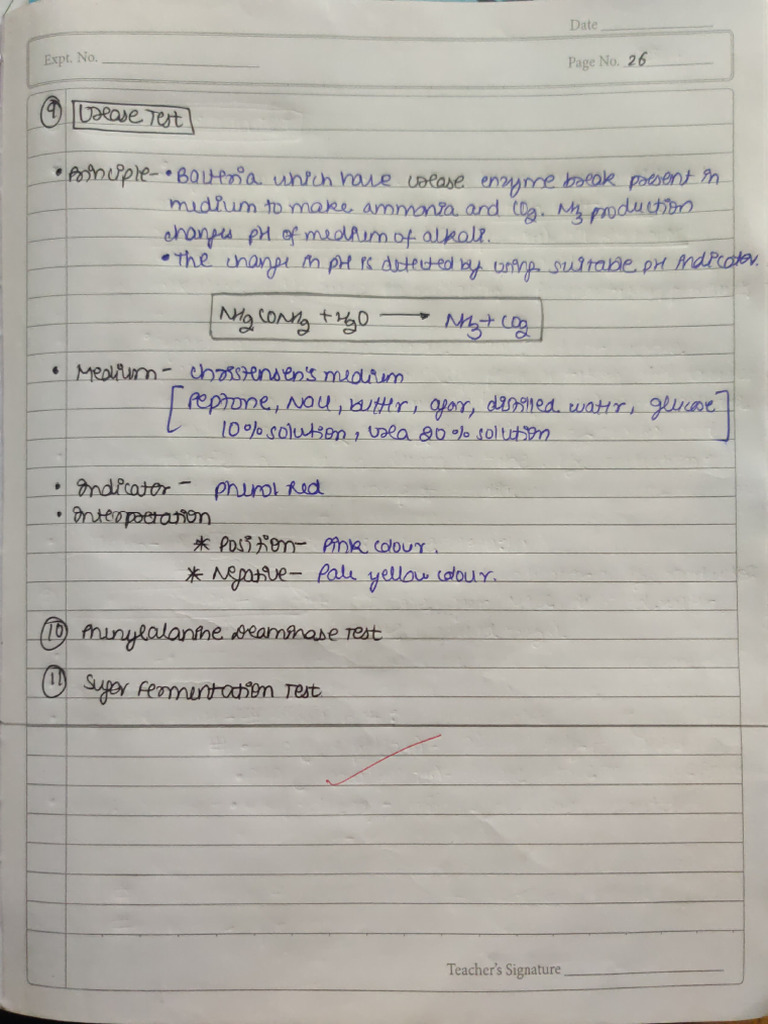 Date
Expt. No.
Page No. 26
⑨ Urease Test
• Principle- • Bacteria which have urease enzyme break present in
medium to make ammonia and CO2. NH3 production
changes pH of medium of alkali.
• The change in pH is detected by using suitable pH indicator.
NH2CONH2 + H2O → NH3 + CO2
• Medium - Christensen's medium
[Peptone, NaCl, butter, agar, distilled water, glucose
10% solution, urea 20% solution]
• Indicator - phenol Red
• Interpretation
* Position- Pink colour.
* Negative- Pale yellow colour.
⑩ Phenylalanine Deaminase Test
⑪ Sugar Fermentation Test
Teacher's Signature